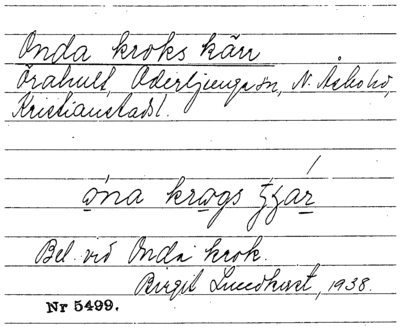 Onda kroks kärr
Örahult, Oderljunga sn, N. Åsbo hd,
Kristianstads l.
óna krogs ʒʒár
Bel. vid Onda krok.
Birgit Lundkvist, 1938.
Nr 5499.